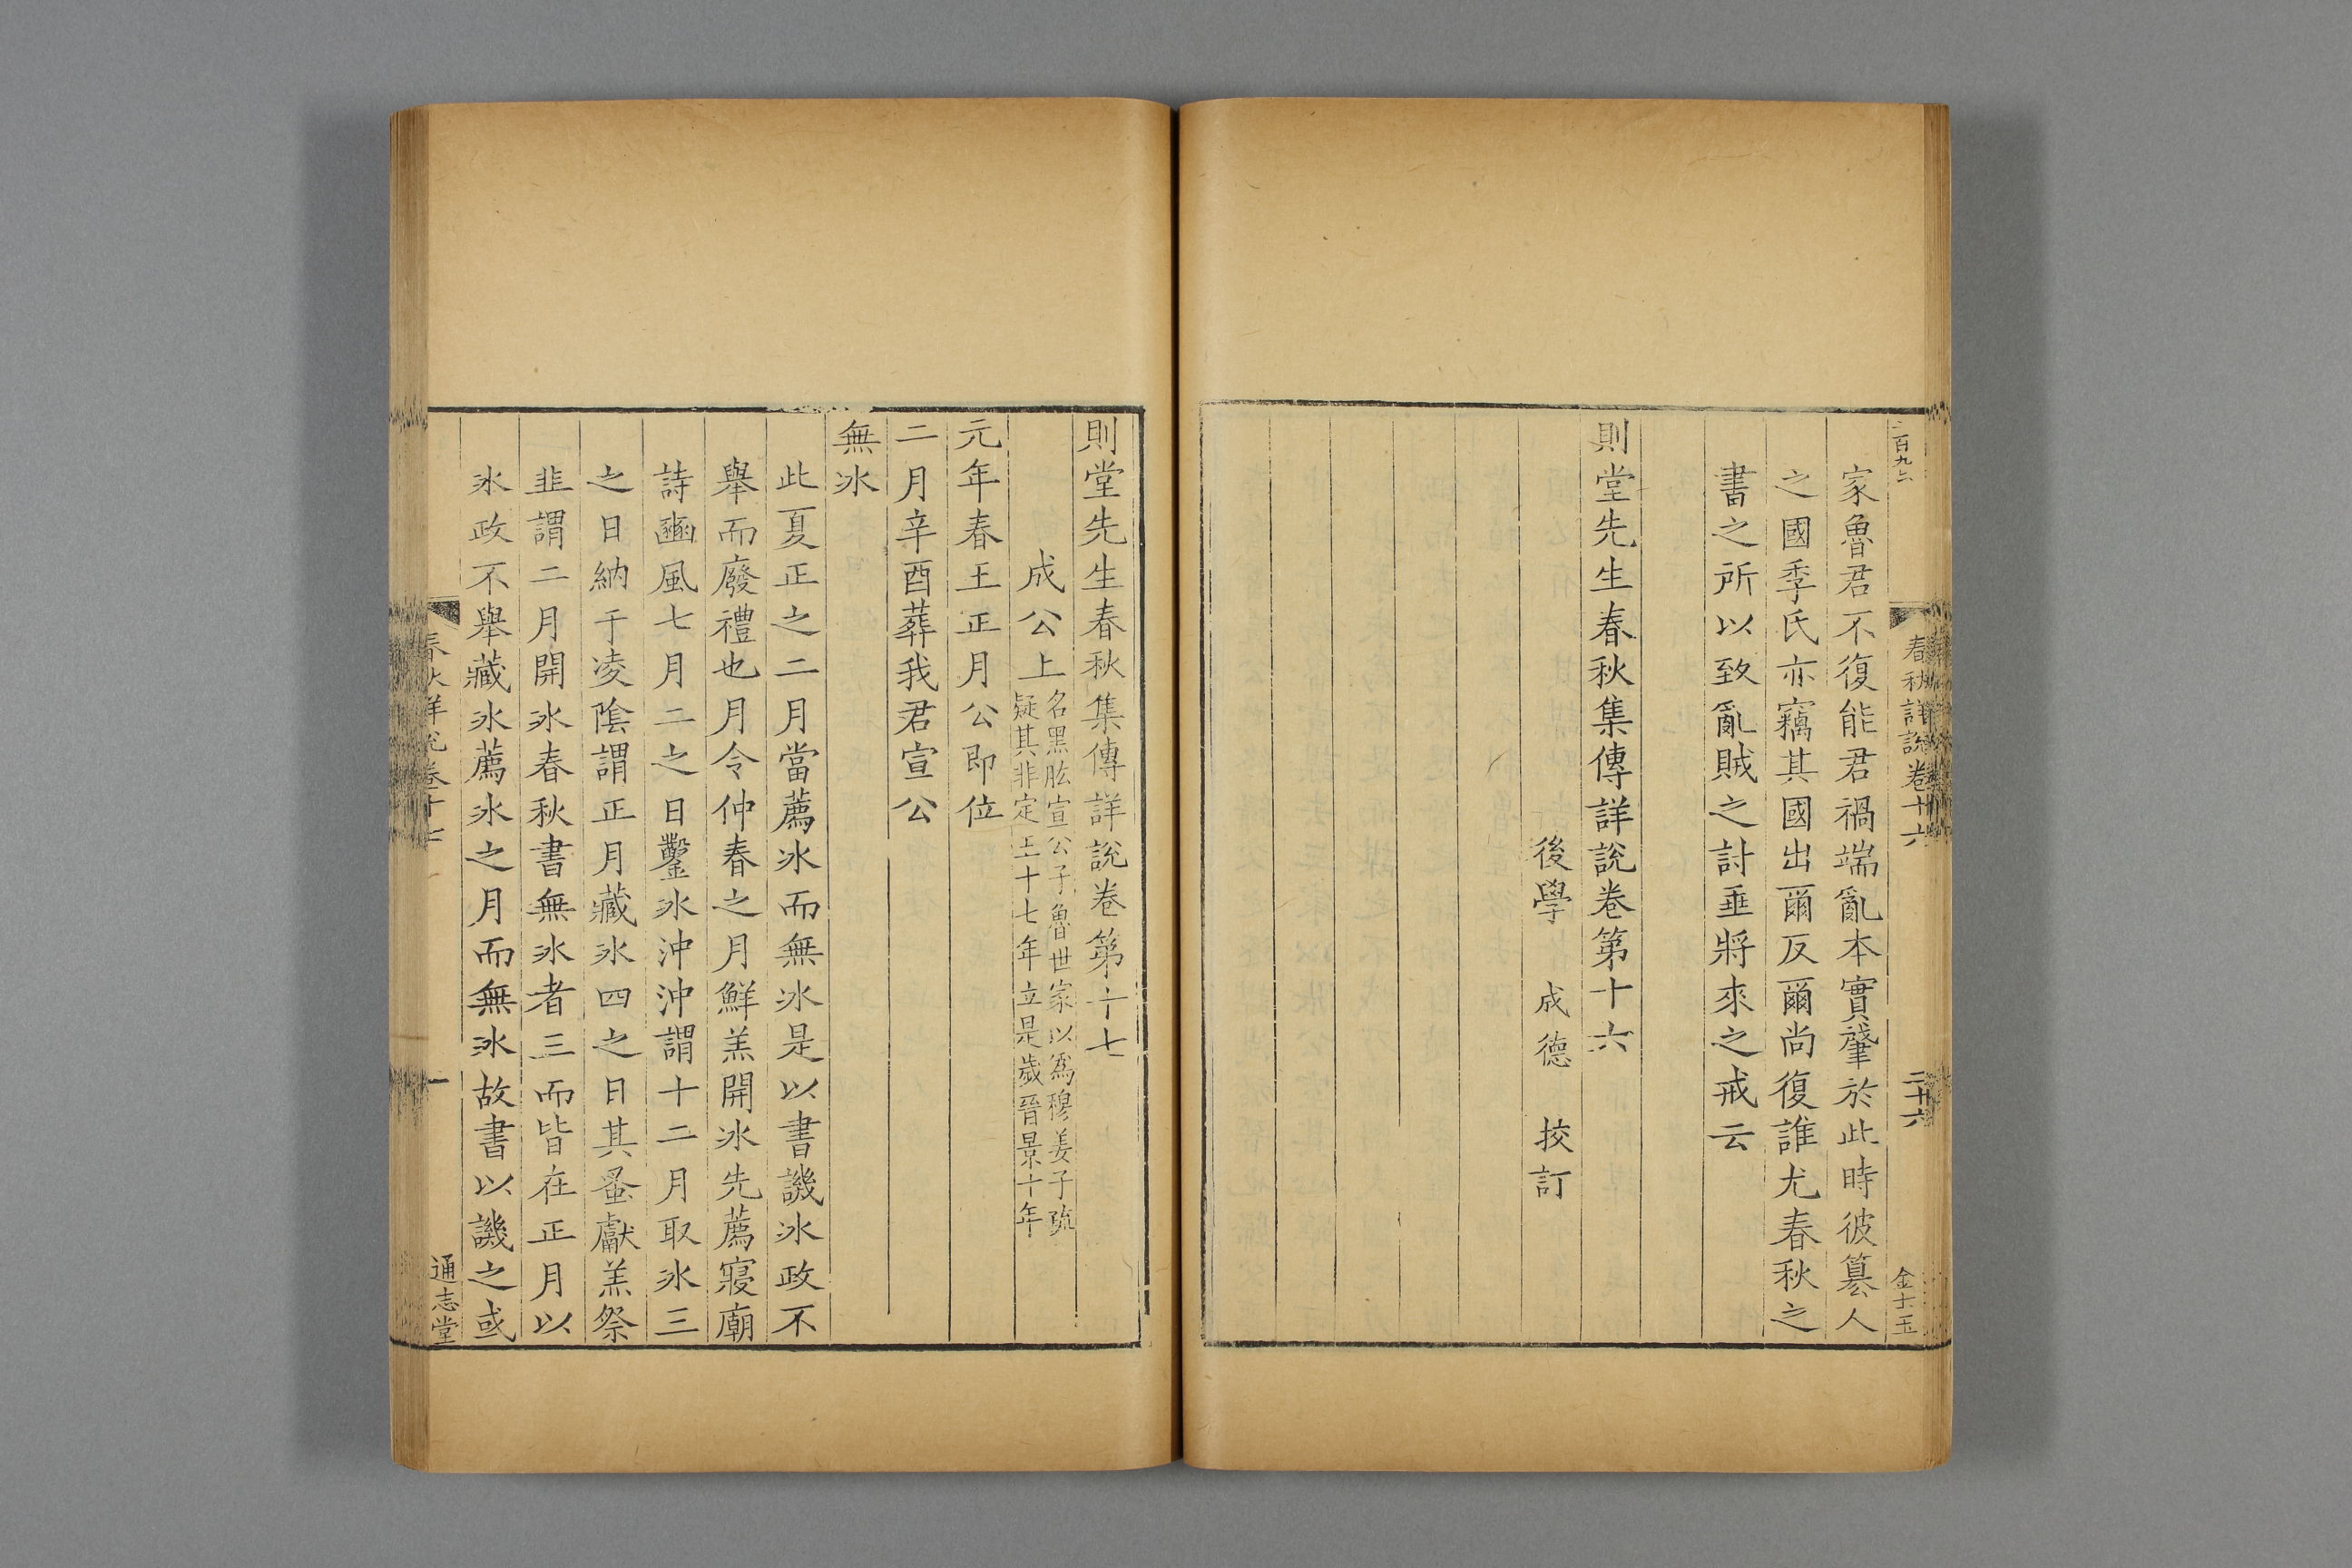 二百九六
春秋詳說卷十六
二十六
金士玉
家魯君不復能君禍端亂本實肇於此時彼簒人
之國季氏亦竊其國出爾反爾尚復誰尤春秋之
書之所以致亂賊之討垂將來之戒云
則堂先生春秋集傳詳說卷第十六
後學 成德 挍訂
則堂先生春秋集傳詳說卷第十七
成公上
名黑肱宣公子魯世家以爲穆姜子疏
疑其非定王十七年立是歲晉景十年
元年春王正月公即位
二月辛酉葬我君宣公
無冰
此夏正之二月當薦冰而無冰是以書譏冰政不
舉而廢禮也月令仲春之月鮮羔開冰先薦寢廟
詩豳風七月二之日鑿冰沖沖謂十二月取冰三
之日納于凌陰謂正月藏冰四之日其蚤獻羔祭
韭謂二月開冰春秋書無冰者三而皆在正月以
冰政不舉藏冰薦冰之月而無冰故書以譏之或
春秋詳說卷十七
一
通志堂